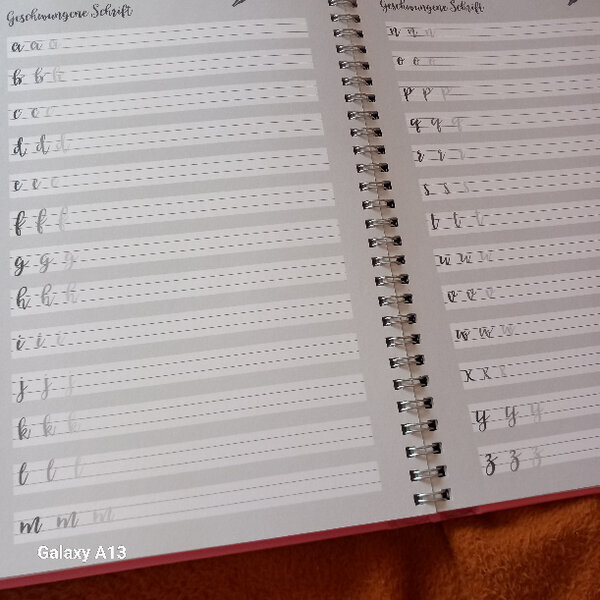 Geschwungene Schrift
a a a
b b b
c c c
d d d
e e e
f f f
g g g
h h h
i i i
j j j
k k k
l l l
m m m
Geschwungene Schrift
n n n
o o o
p p p
q q q
r r r
s s s
t t t
u u u
v v v
w w w
x x x
y y y
z z z
Galaxy A13